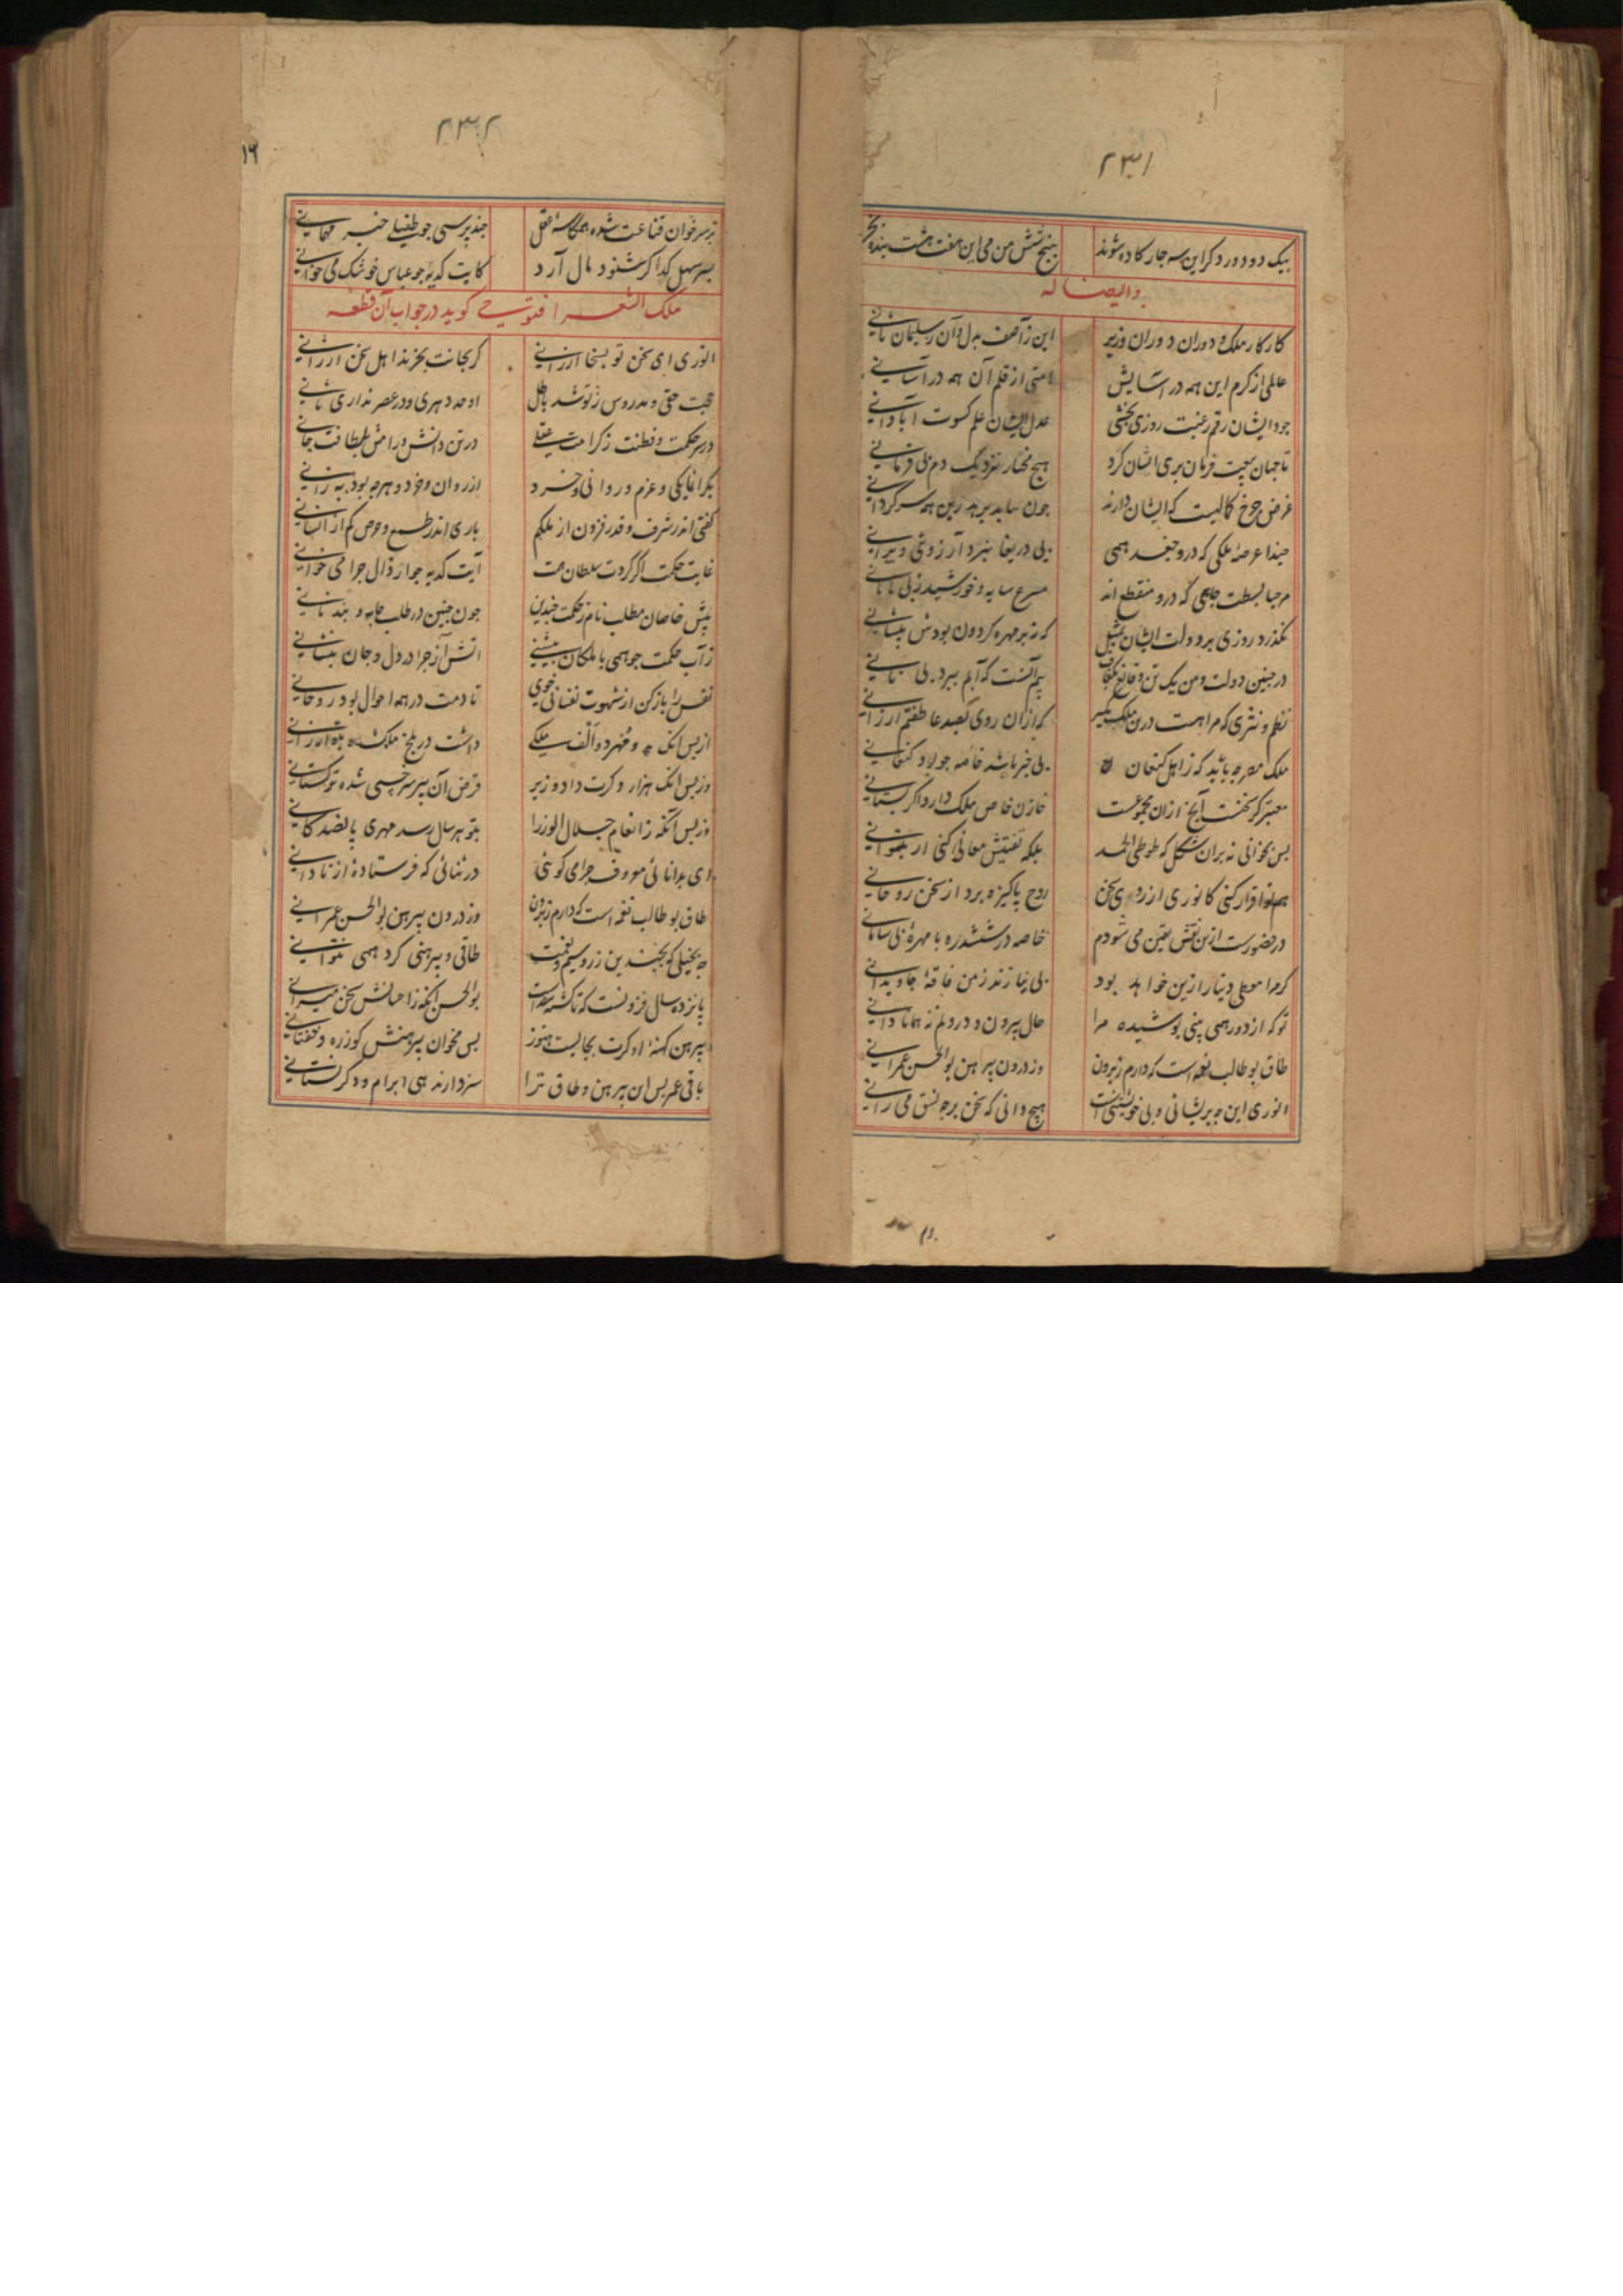 ۲۳۱
بیک دو دور دکر این سه جار کاده شوند پنج شش من می این هفت هشت بنده بخر
و ایضا له
کار کار ملک و دوران دوران وزیر این ز آصف بدل و آن ز سلیمان ثانی
عالمی از کرم این همه در آسایش امتی از قلم آن همه در آسانی
جود ایشان رقم رغبت روزی بخشی عدل ایشان علم کسوت آبادانی
تا جهان بیعت فرمان بری ایشان کرد هیچ مختار نزد یک دم بی فرمانی
غرض جرخ کمالیت که ایشان دارند جون بباید برهد زین همه سرکردانی
حبذا عرصه ملکی که درو جغد همی بی دریغا نبرد آرزوی ویرانی
مرحبا بسطت جاهی که درو منقطع اند مسرع سایه و خورشید ز بی پایانی
نکذرد روزی بر دولت ایشان بمثل که نه بر مهره کردون بودش پیشانی
در جنین دولت و من یک تن و قانع بکفاف بیم آنست که آبم ببرد بی نانی
نظم و نثری که مرا هست درین ملک مکیر که از آن روی بصد عاطفتم ارزانی
ملک مصر جه باید که ز اهل کنعان بی خبر باشد خاصه جو بود کنعانی
معتبر کر سخنست آنج از آن مجموعست خازن خاص ملک دارد اکر بستانی
بس بخوانی نه بران شکل که طوطی الحمد بلکه تفتیش معانی کنی ار بتوانی
هم تو اقرار کنی کانوری از روی سخن روح پاکیزه برد از سخن روحانی
در حضورست ازین نقش یقین می شودم خاصه در ششدره با مهره بی سامانی
کرم را معطی دینار ازین خواهد بود بی نیازند ز من فاقه جاویدانی
تو که از دور همی بینی پوشیده مرا حال بیرون و درونم نه همانا دانی
طاق بو طالب نعمه است که دارم ز برون وز درون پیرهن بوالحسن عمرانی
انوری این جه پریشانی و بی خویشتنیست هیچ دانی که سخن بر جه نسق می رانی
۲۳۲
۱۶
بر سر خوان قناعت شده همکاسه عقل جند برسی جو طفیلی خبر مهمانی
بسر سهل کدا کر شنود مال آرد کایت کدیه جو عباس خوشک می خوانی
ملک الشعرا فتوحی کوید در جواب آن قطعه
انوری ای سخن تو بسخا ارزانی کر بجانت بخرند اهل سخن ارزانی
حجت حقی و مدروس ز تو شد باطل اوحد دهری و در عصر نداری ثانی
در سر حکمت و فطنت ز کرامت عقلی در تن دانش و رامش بلطافت جانی
کفتی اندر شرف و قدر فزون از ملکم باری اندر طمع و حرص کم از انسانی
غایت حکمت اکر کردت سلطان سخن آیت کدیه جو ارذال جرا می خوانی
پیش خاصان مطلب نام ز حکمت جندین جون جنین در طلب جامه و بند نانی
ز آب حکمت جو همی با ملکان بنشینی آتش آز جرا در دل و جان بنشانی
نفس را باز کن از شهوت نفسانی خوی تا دمت در همه احوال بود روحانی
از بس آنک و مهر دو الف ملکی داشت در بلخ ملک شاه بتو ارزانی
وز بس آنک هزار دکرت داد وزیر قرض آن پیر سرخسی شده ترکستانی
وز بس آنکه ز انعام جلال الوزرا بتو هر سال رسد مهری پانصد کانی
ای بدانائی معروف جرا می کوئی در ثنائی که فرستاده از نادانی
طاق بو طالب نعمه است که دارم ز برون وز درون پیرهن بوالحسن عمرانی
جه بخیلی که بجندین زر و سیم و نعمت طاقی و پیرهنی کرد همی نتوانی
پانزده سال فزونست که تا کشته شدست بوالحسن آنکه ز احسانش سخن میرانی
پیرهن کهنه او کرت بجایست هنوز بس مخوان پیرهنش کو زره و خفتانی
باقی عمر بس آن پیرهن و طاق ترا سزد ار ندهی ابرام و دکر نستانی